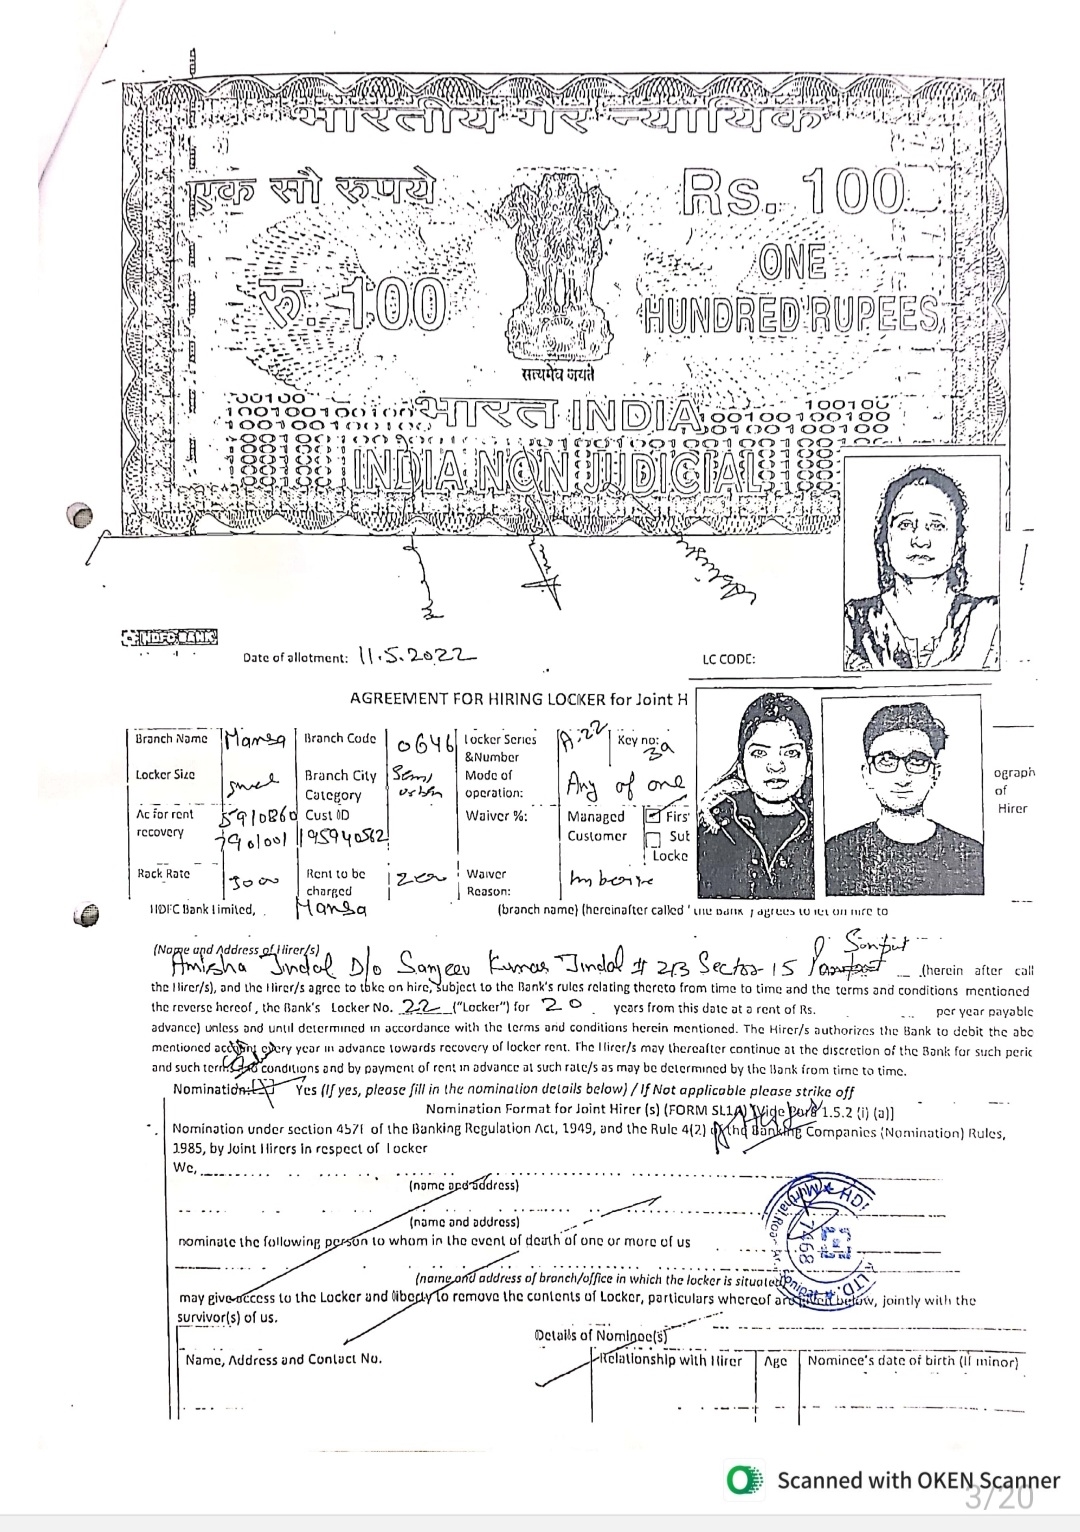 भारतीय गैर न्यायिक
एक सौ रुपये
Rs. 100
रु. 100
ONE
HUNDRED RUPEES
सत्यमेव जयते
भारत INDIA
INDIA NON JUDICIAL
HDFC BANK
Date of allotment: 11.5.2022
LC CODE:
AGREEMENT FOR HIRING LOCKER for Joint H
Branch Name Mansa Branch Code 0646 Locker Series &Number A-22 Key no:
Locker Size Branch City Category Semi urban Mode of operation: Any of one
Ac for rent recovery 5910860 7901001 Cust ID 195940562 Waiver %: Managed Customer Firs
Sut
Locke
ograph
of
Hirer
Rack Rate 3000 Rent to be charged Waiver Reason:
HDFC Bank Limited, Mansa (branch name) (hereinafter called 'the bank') agrees to let on hire to
(Name and Address of Hirer/s)
Amisha Jindal D/o Sanjeev Kumar Jindal # 213 Sector-15 Sonipat (herein after call
the Hirer/s), and the Hirer/s agree to take on hire, subject to the Bank's rules relating thereto from time to time and the terms and conditions mentioned
the reverse hereof, the Bank's Locker No. 22 ("Locker") for 20 years from this date at a rent of Rs. per year payable
advance) unless and until determined in accordance with the terms and conditions herein mentioned. The Hirer/s authorizes the Bank to debit the abc
mentioned account every year in advance towards recovery of locker rent. The Hirer/s may thereafter continue at the discretion of the Bank for such peric
and such terms and conditions and by payment of rent in advance at such rate/s as may be determined by the Bank from time to time.
Nomination: Yes (If yes, please fill in the nomination details below) / If Not applicable please strike off
Nomination Format for Joint Hirer (s) (FORM SL1A) [Vide Para 1.5.2 (i) (a)]
Nomination under section 45ZI of the Banking Regulation Act, 1949, and the Rule 4(2) of the Banking Companies (Nomination) Rules,
1985, by Joint Hirers in respect of Locker
We,
(name and address)
(name and address)
nominate the following person to whom in the event of death of one or more of us
(name and address of branch/office in which the locker is situated)
may give access to the Locker and liberty to remove the contents of Locker, particulars whereof are given below, jointly with the
survivor(s) of us.
7468
Details of Nominee(s)
Name, Address and Contact No. Relationship with Hirer Age Nominee's date of birth (If minor)
Scanned with OKEN Scanner
3/20